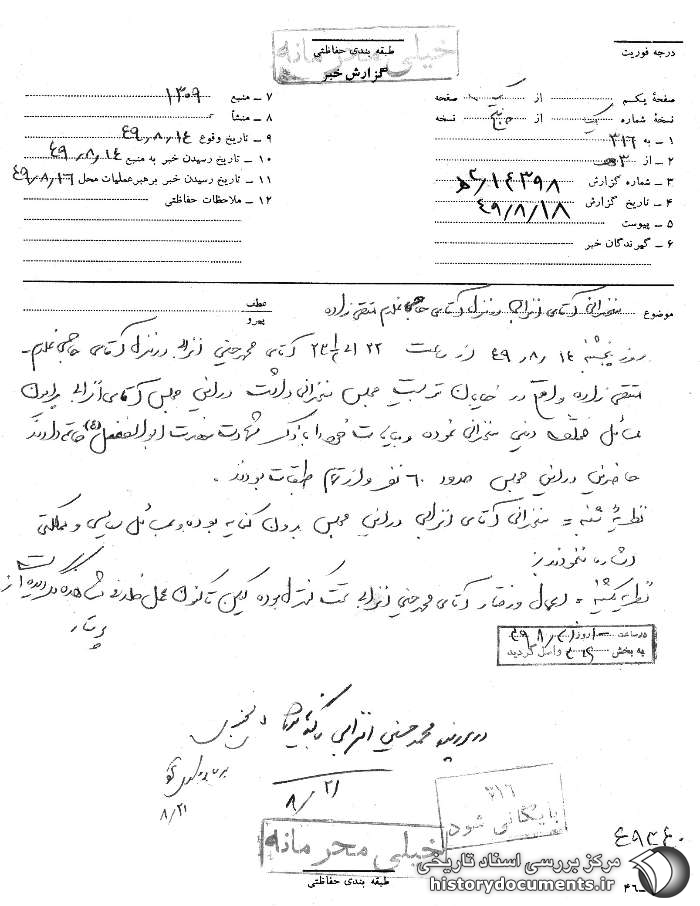 درجه فوریت
خیلی محرمانه
طبقه بندی حفاظتی
گزارش خبر
صفحهٔ یکم از یک صفحه
نسخهٔ شماره یک از پنج نسخه
۱ ـ به ۳۱۶
۲ ـ از ۳ ه‍
۳ ـ شماره گزارش ۱۴۳۹۸/ ه‍ ۳
۴ ـ تاریخ گزارش ۴۹/۸/۱۸
۵ ـ پیوست
۶ ـ گیرندگان خبر
۷ ـ منبع ۱۳۰۹
۸ ـ منشأ
۹ ـ تاریخ وقوع ۴۹/۸/۱۴
۱۰ ـ تاریخ رسیدن خبر به منبع ۴۹/۸/۱۴
۱۱ ـ تاریخ رسیدن خبر برهبرعملیات محل ۴۹/۸/۱۶
۱۲ ـ ملاحظات حفاظتی
موضوع سخنرانی آقای انزابی در منزل آقای حاجی غلام متقی زاده
عطف
پیرو
روز پنجشنبه ۴۹/۸/۱۴ از ساعت ۲۲ الی ۲۳ آقای محمد حسین انزابی در منزل آقای حاجی غلام ـ
متقی زاده واقع در خیابان تربیت مجلس سخنرانی داشت در این مجلس آقای انزابی پیرامون
مسائل مختلف دینی سخنرانی نموده و بیانات خود را با ذکر شهادت حضرت ابوالفضل (ع) خاتمه دادند
حاضرین در این مجلس حدود ۶۰ نفر و از تمام طبقات بودند .
نظریه شنبه = سخنرانی آقای انزابی در این مجلس بدون کنایه بوده و به مسائل سیاسی و مملکتی
اشاره ننمودند
نظریه یکشنبه = اعمال و رفتار آقای محمد حسین انزابی تحت کنترل بوده لیکن تاکنون عمل خلافی مشاهده نگردیده است از
درساعت ۱۰ روز ۴۹/۸/۲۱
به بخش واصل گردید
در پرونده محمد حسین انزابی بایگانی
۸/۲۱
۸/۲۱
۳۱۶
بایگانی شود
خیلی محرمانه
طبقه بندی حفاظتی
۴۹۳۴۰
مرکز بررسی اسناد تاریخی
historydocuments.ir
ـ۴۶